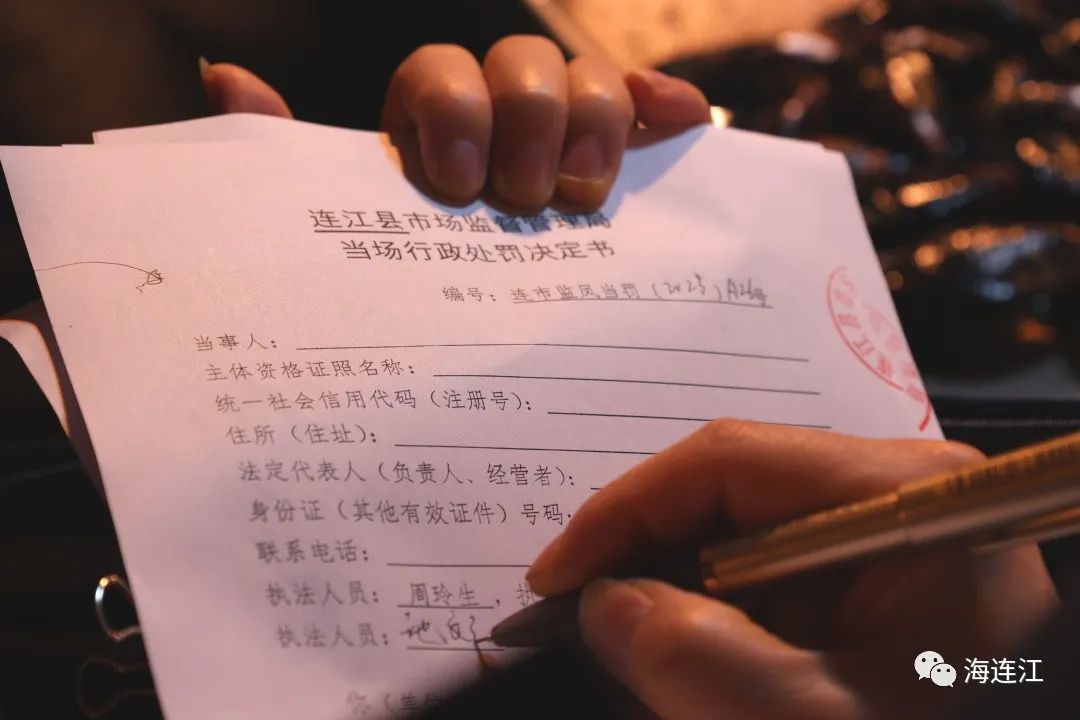 连江县市场监督管理局
当场行政处罚决定书
编号：连市监凤当罚（2023）A26号
当事人：
主体资格证照名称：
统一社会信用代码（注册号）：
住所（住址）：
法定代表人（负责人、经营者）：
身份证（其他有效证件）号码：
联系电话：
执法人员：周玲生，执
执法人员：
海连江